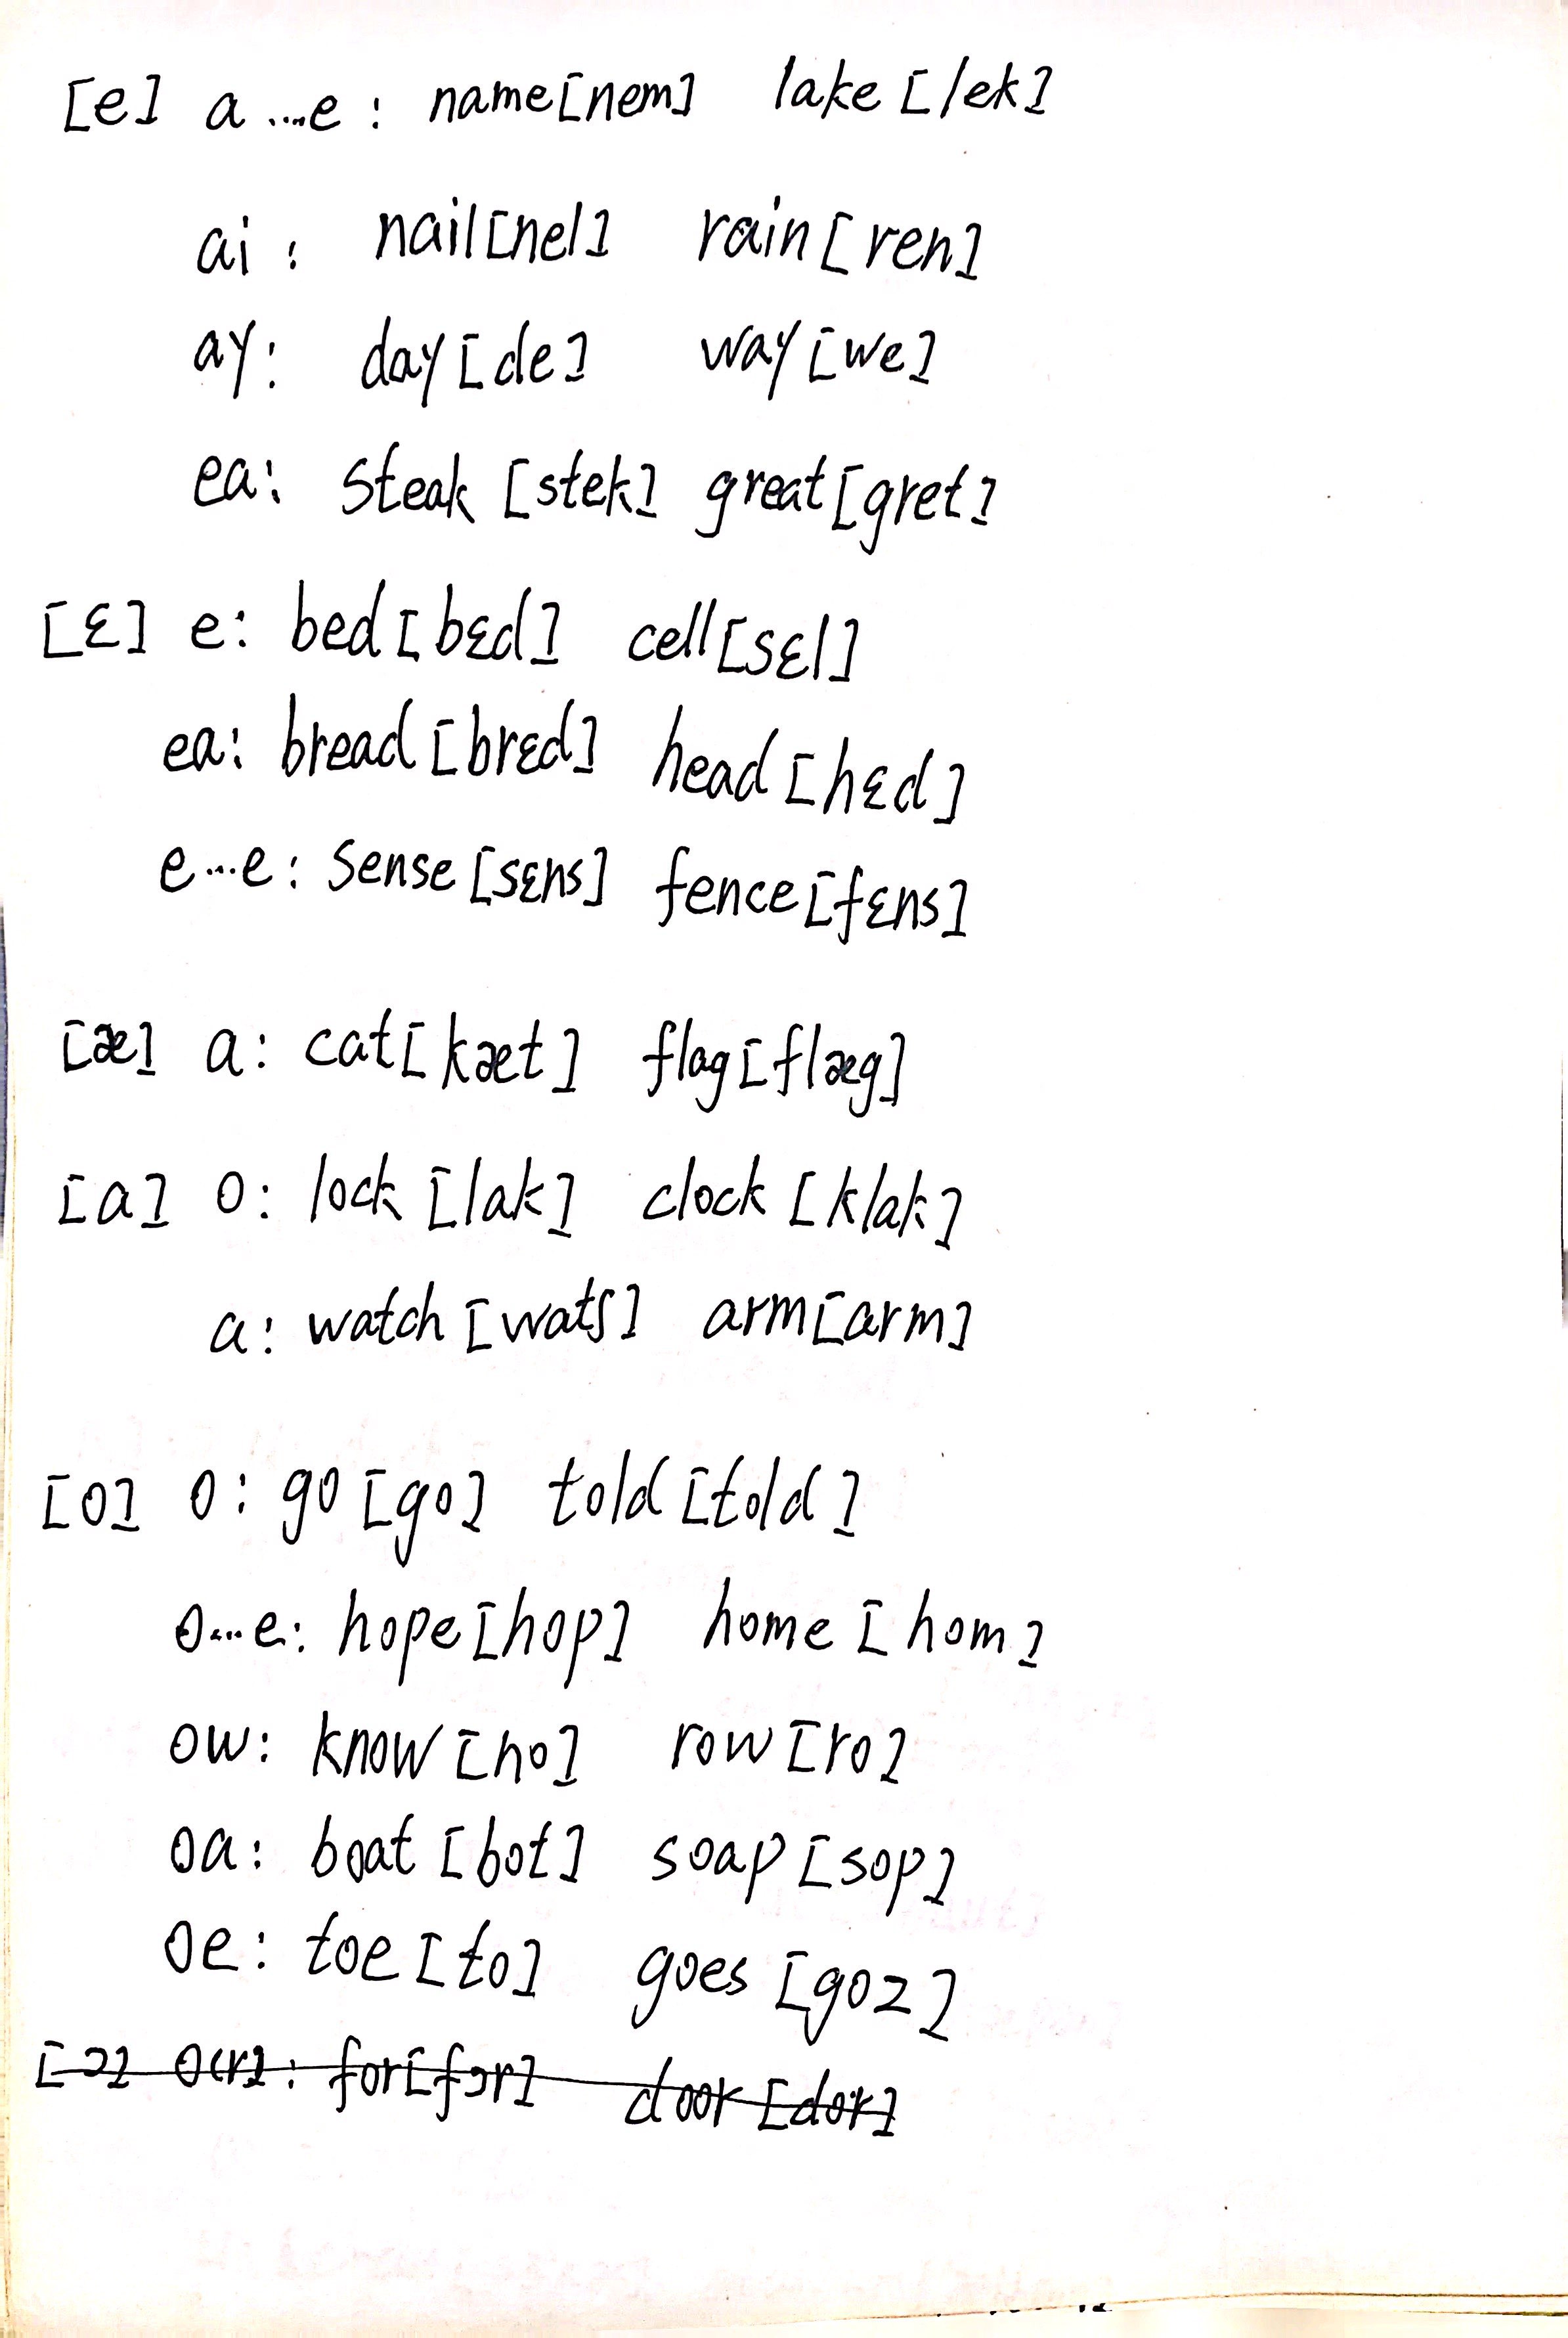 [e] a...e: name[nem] lake[lek]
ai: nail[nel] rain[ren]
ay: day[de] way[we]
ea: steak [stek] great[gret]
[ɛ] e: bed[bɛd] cell[sɛl]
ea: bread[brɛd] head[hɛd]
e...e: sense[sɛns] fence[fɛns]
[æ] a: cat[kæt] flag[flæg]
[a] o: lock [lak] clock [klak]
a: watch [watʃ] arm[arm]
[o] o: go [go] told[told]
o...e: hope[hop] home [hom]
ow: know[no] row[ro]
oa: boat [bot] soap [sop]
oe: toe[to] goes [goz]
[ɔ] o(r): for[fɔr] door [dor]